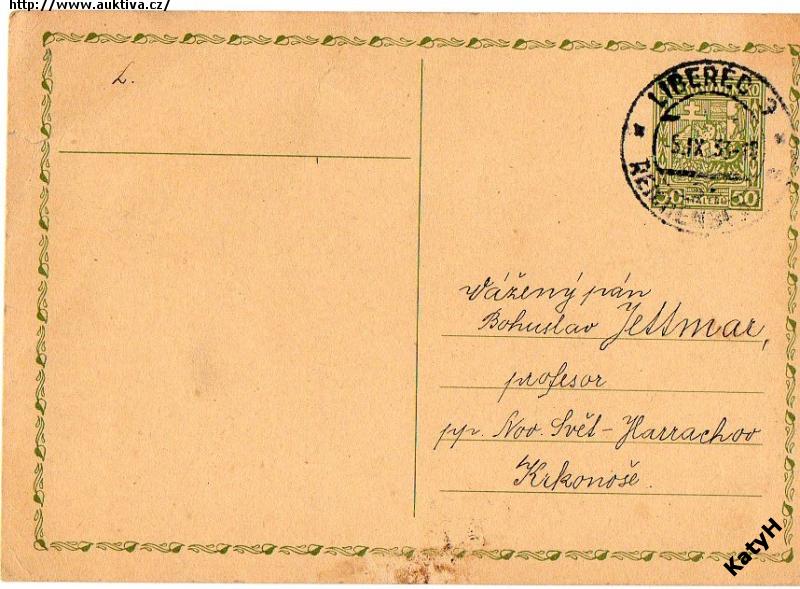 http://www.auktiva.cz/
L.
LIBEREC 2
5.IX.33
50 50
Vážený pán
Bohuslav Jettmar,
profesor
pp. Nov. Svět - Harrachov
Krkonoše.
KatyH